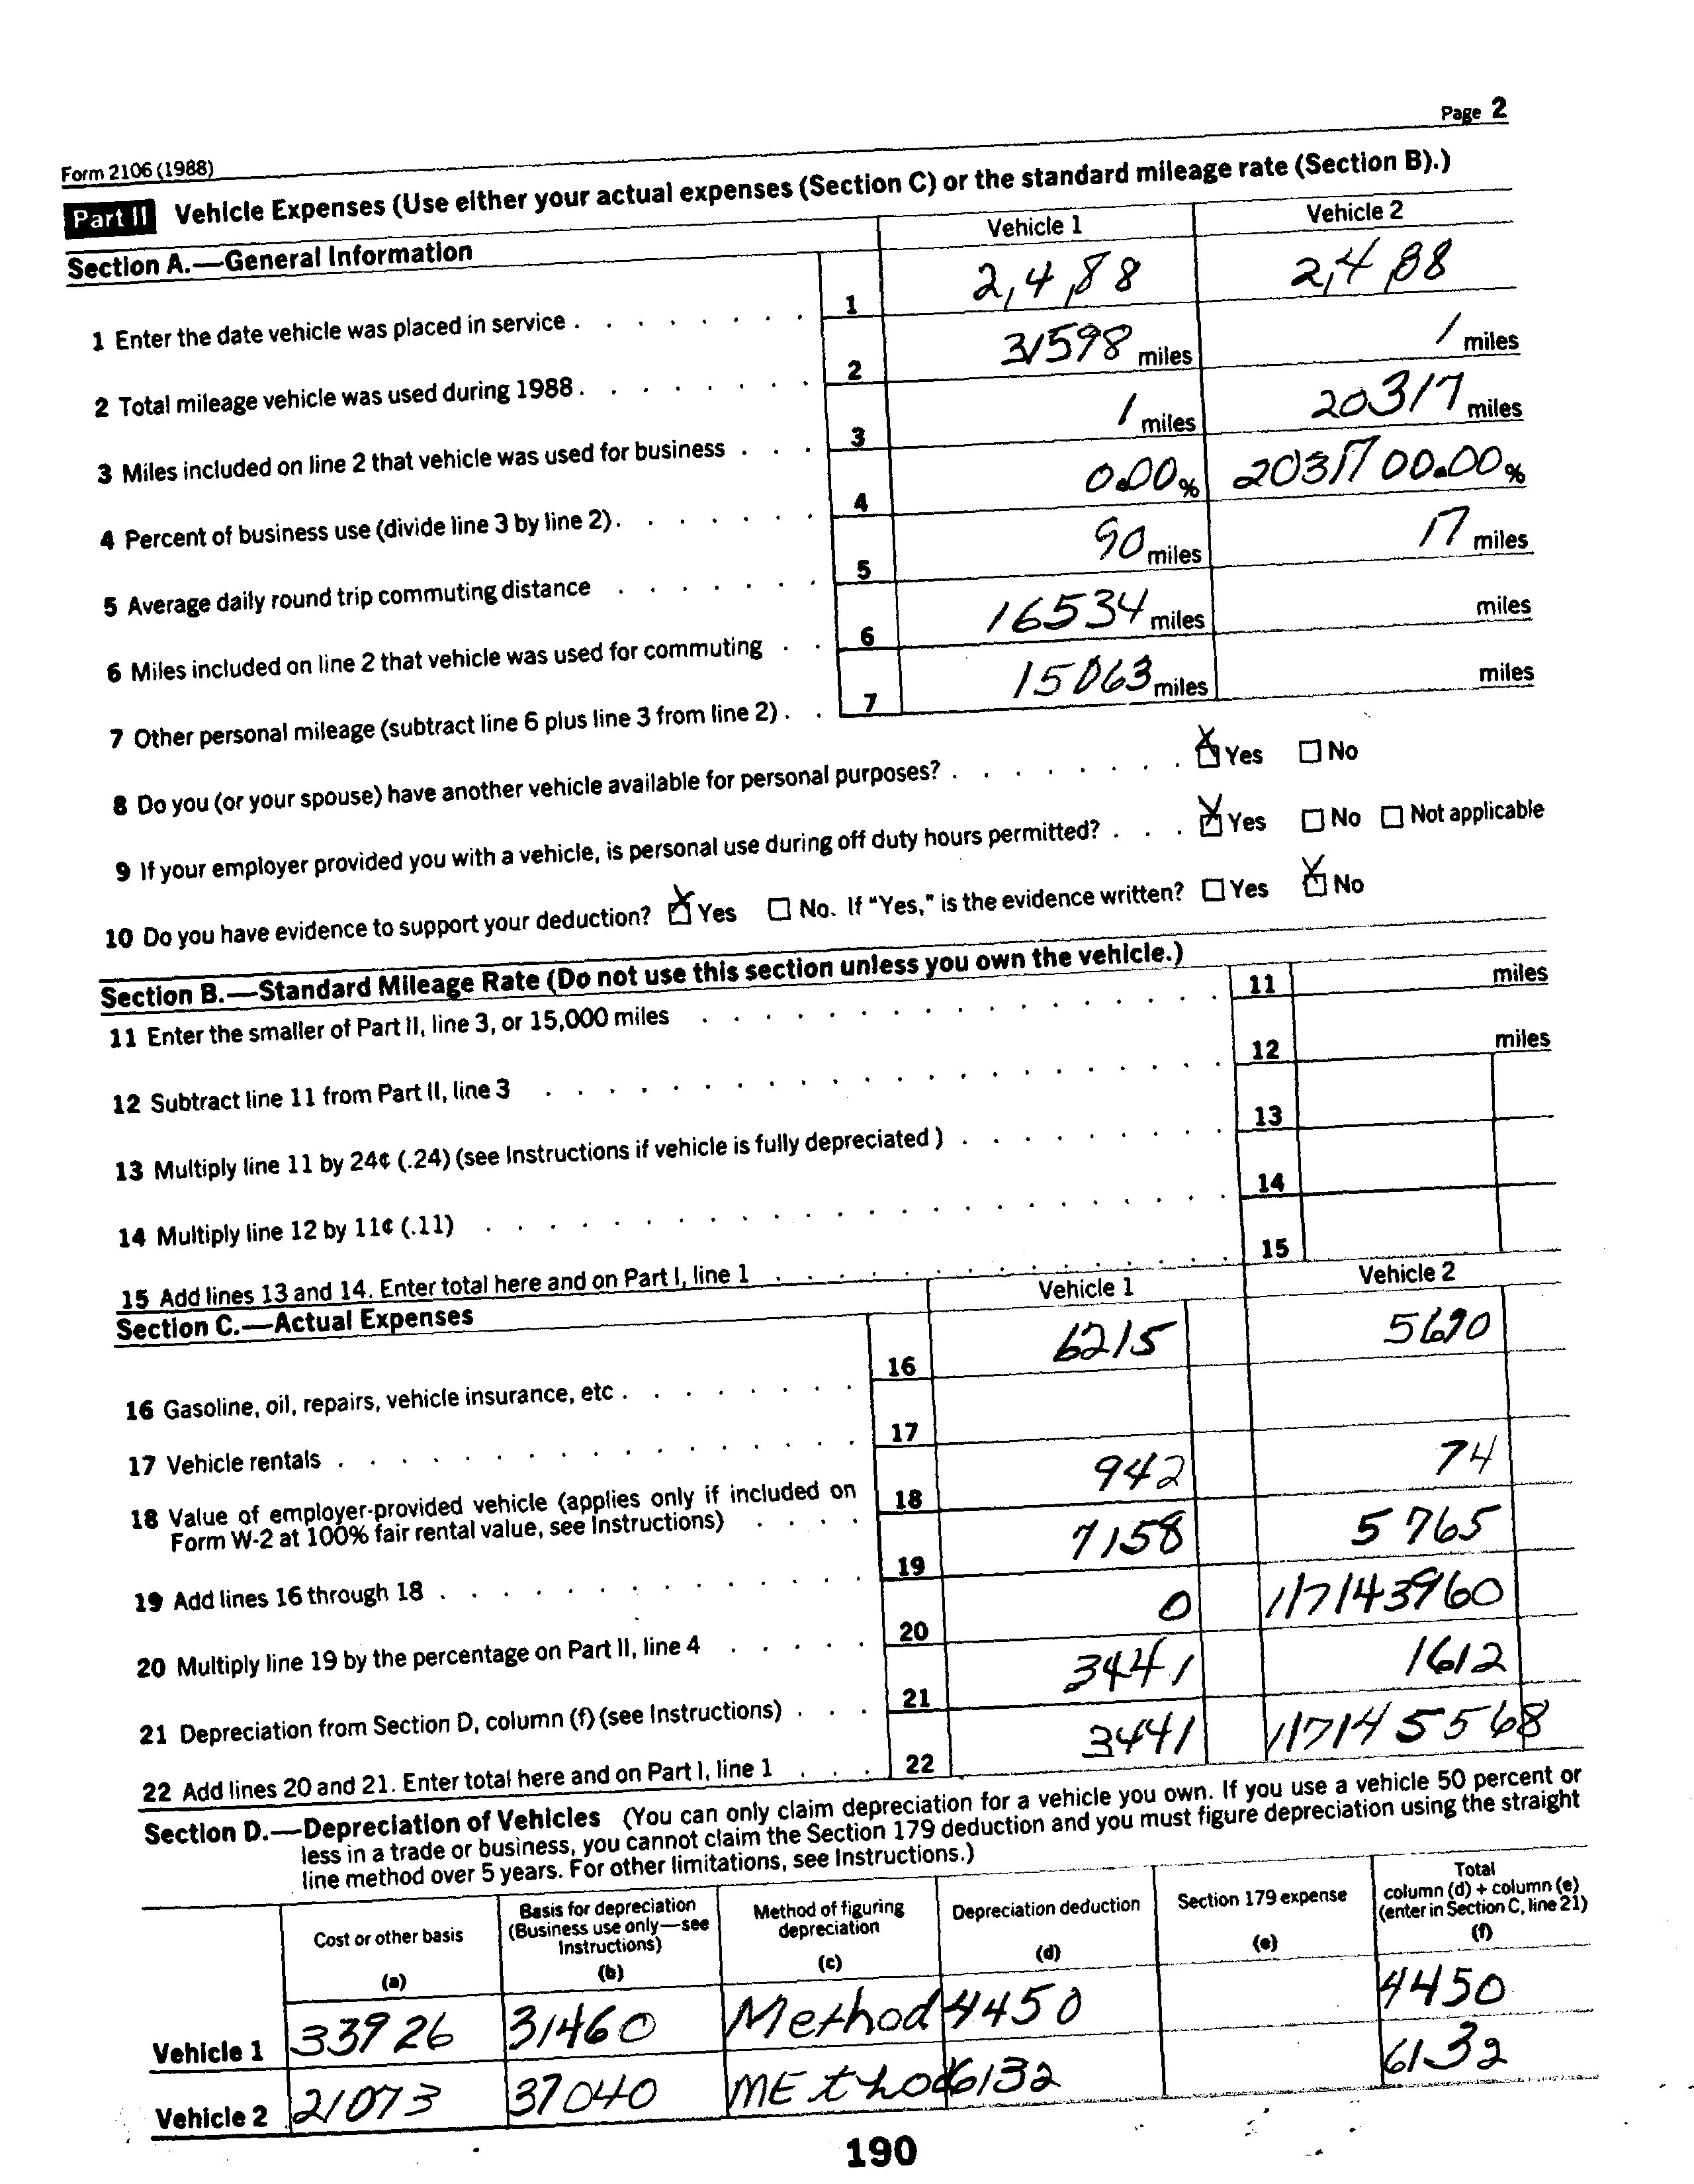 Form 2106 (1988) Page 2
Part II Vehicle Expenses (Use either your actual expenses (Section C) or the standard mileage rate (Section B).)
Section A.—General Information Vehicle 1 Vehicle 2
1 Enter the date vehicle was placed in service . . . . . . . . 1 2,4,88 2,4,88
2 Total mileage vehicle was used during 1988 . . . . . . . . 2 31598 miles 1 miles
3 Miles included on line 2 that vehicle was used for business . . . 3 1 miles 20317 miles
4 Percent of business use (divide line 3 by line 2) . . . . . . . 4 0.00 % 2031700.00 %
5 Average daily round trip commuting distance . . . . . . . 5 90 miles 17 miles
6 Miles included on line 2 that vehicle was used for commuting . . 6 16534 miles miles
7 Other personal mileage (subtract line 6 plus line 3 from line 2) . . 7 15063 miles miles
8 Do you (or your spouse) have another vehicle available for personal purposes? . . . . . . . . X Yes No
9 If your employer provided you with a vehicle, is personal use during off duty hours permitted? . . . X Yes No Not applicable
10 Do you have evidence to support your deduction? X Yes No. If "Yes," is the evidence written? Yes X No
Section B.—Standard Mileage Rate (Do not use this section unless you own the vehicle.)
11 Enter the smaller of Part II, line 3, or 15,000 miles . . . . . . . . . . . . . . . . . 11 miles
12 Subtract line 11 from Part II, line 3 . . . . . . . . . . . . . . . . . . . . . . 12 miles
13 Multiply line 11 by 24¢ (.24) (see Instructions if vehicle is fully depreciated ) . . . . . . . . . 13
14 Multiply line 12 by 11¢ (.11) . . . . . . . . . . . . . . . . . . . . . . . . 14
15 Add lines 13 and 14. Enter total here and on Part I, line 1 . . . . . . . . . . . . . . . 15
Section C.—Actual Expenses Vehicle 1 Vehicle 2
16 Gasoline, oil, repairs, vehicle insurance, etc . . . . . . . . 16 6215 5690
17 Vehicle rentals . . . . . . . . . . . . . . . . . 17
18 Value of employer-provided vehicle (applies only if included on
Form W-2 at 100% fair rental value, see Instructions) . . . . 18 942 74
19 Add lines 16 through 18 . . . . . . . . . . . . . . 19 7158 5765
20 Multiply line 19 by the percentage on Part II, line 4 . . . . . 20 0 117143960
21 Depreciation from Section D, column (f) (see Instructions) . . . 21 3441 1612
22 Add lines 20 and 21. Enter total here and on Part I, line 1 . . . 22 3441 117145568
Section D.—Depreciation of Vehicles (You can only claim depreciation for a vehicle you own. If you use a vehicle 50 percent or
less in a trade or business, you cannot claim the Section 179 deduction and you must figure depreciation using the straight
line method over 5 years. For other limitations, see Instructions.)
Cost or other basis (a) Basis for depreciation (Business use only—see Instructions) (b) Method of figuring depreciation (c) Depreciation deduction (d) Section 179 expense (e) Total column (d) + column (e) (enter in Section C, line 21) (f)
Vehicle 1 33926 31460 Method 4450 4450
Vehicle 2 21073 37040 MEthod 6132 6132
190